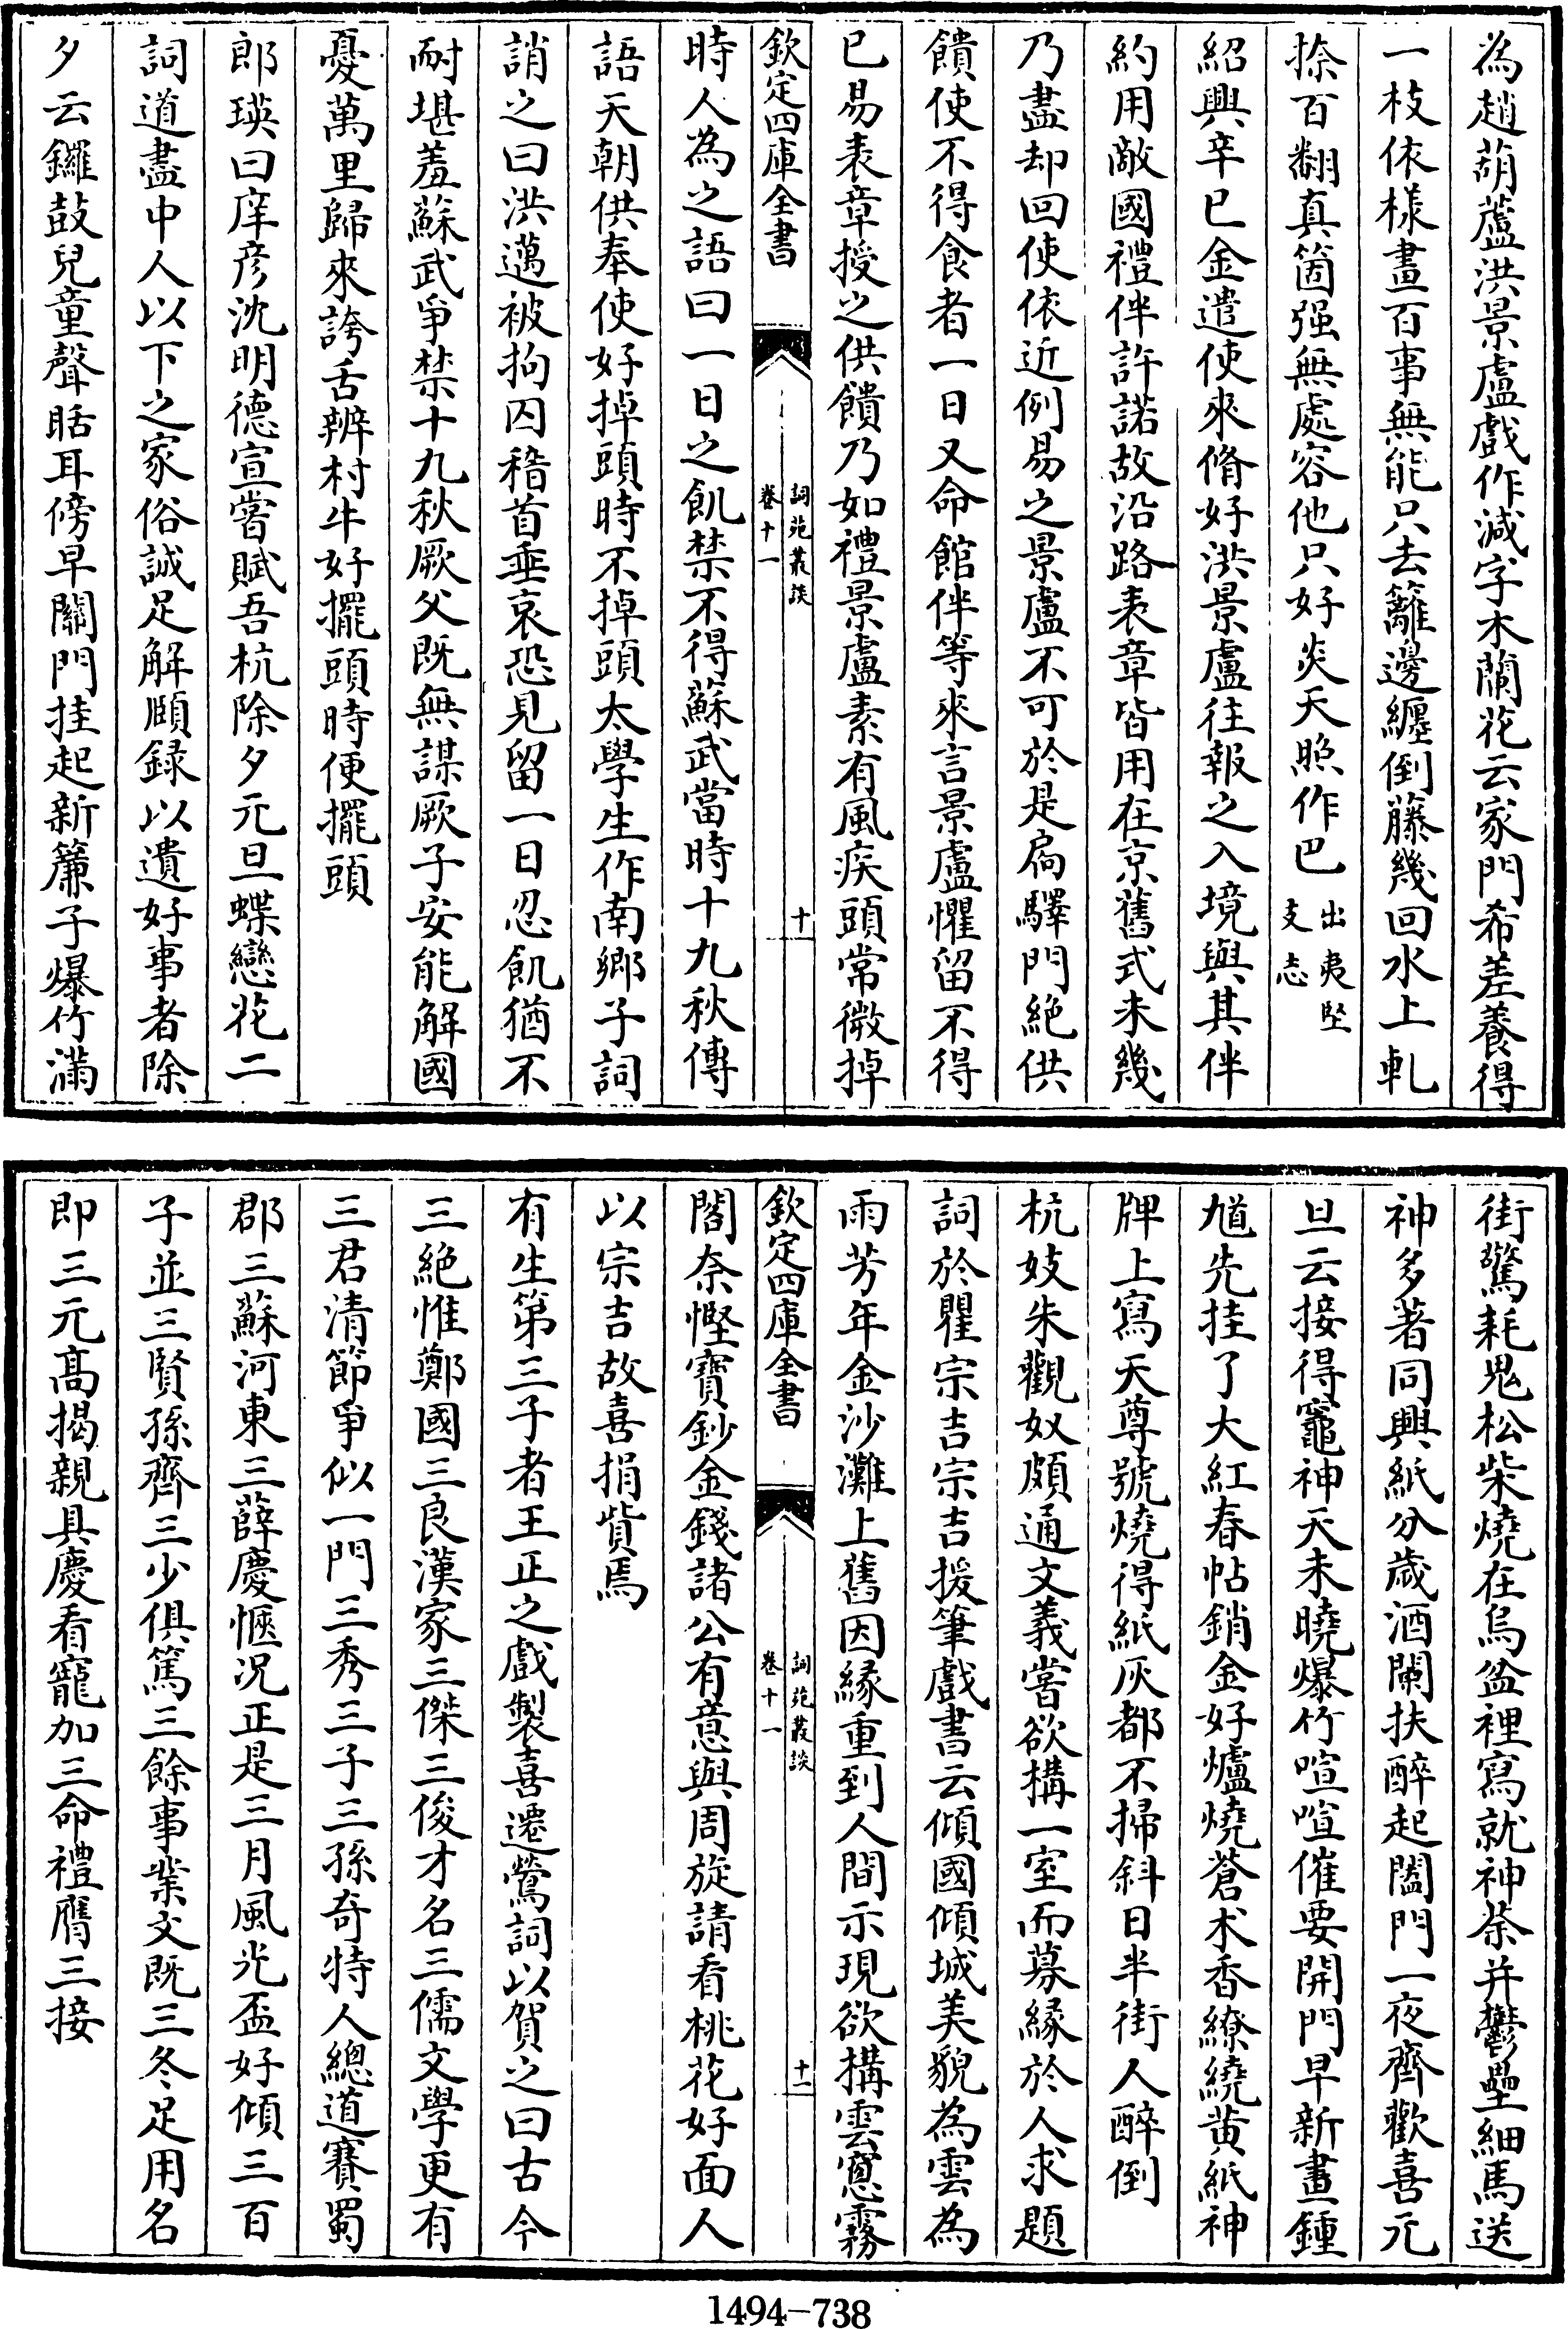 為趙葫蘆洪景盧戲作減字木蘭花云家門希差養得
一枝依樣畫百事無能只去籬邊纏倒藤幾回水上軋
捺百翻真箇强無處容他只好炎天照作巴出夷堅
支志
紹興辛巳金遣使來脩好洪景盧往報之入境與其伴
約用敵國禮伴許諾故沿路表章皆用在京舊式未幾
乃盡却回使依近例易之景盧不可於是扃驛門絶供
饋使不得食者一日又命館伴等來言景盧懼留不得
已易表章授之供饋乃如禮景盧素有風疾頭常微掉
欽定四庫全書
詞苑叢談
卷十一
十
時人為之語曰一日之飢禁不得蘇武當時十九秋傳
語天朝供奉使好掉頭時不掉頭太學生作南鄉子詞
誚之曰洪邁被拘囚稽首垂哀恐見留一日忍飢猶不
耐堪羞蘇武爭禁十九秋厥父既無謀厥子安能解國
憂萬里歸來誇舌辨村牛好擺頭時便擺頭
郎瑛曰庠彦沈明德宣嘗賦吾杭除夕元旦蝶戀花二
詞道盡中人以下之家俗誠足解頤録以遺好事者除
夕云鑼鼓兒童聲聒耳傍早關門挂起新簾子爆竹滿
街驚耗鬼松柴燒在烏盆裡寫就神荼并鬱壘細馬送
神多著同興紙分歲酒闌扶醉起闔門一夜齊歡喜元
旦云接得竈神天未曉爆竹喧喧催要開門早新畫鍾
馗先挂了大紅春帖銷金好爐燒蒼术香繚繞黄紙神
牌上寫天尊號燒得紙灰都不掃斜日半街人醉倒
杭妓朱觀奴頗通文義嘗欲構一室而募緣於人求題
詞於瞿宗吉宗吉援筆戲書云傾國傾城美貌為雲為
雨芳年金沙灘上舊因緣重到人間示現欲構雲窻霧
欽定四庫全書
詞苑叢談
卷十一
十一
閣奈慳寶鈔金錢諸公有意與周旋請看桃花好面人
以宗吉故喜捐貲焉
有生第三子者王正之戲製喜遷鶯詞以賀之曰古今
三絶惟鄭國三良漢家三傑三俊才名三儒文學更有
三君清節爭似一門三秀三子三孫奇特人總道賽蜀
郡三蘇河東三薛慶愜况正是三月風光盃好傾三百
子並三賢孫齊三少俱篤三餘事業文既三冬足用名
即三元髙揭親具慶看寵加三命禮膺三接
1494-738